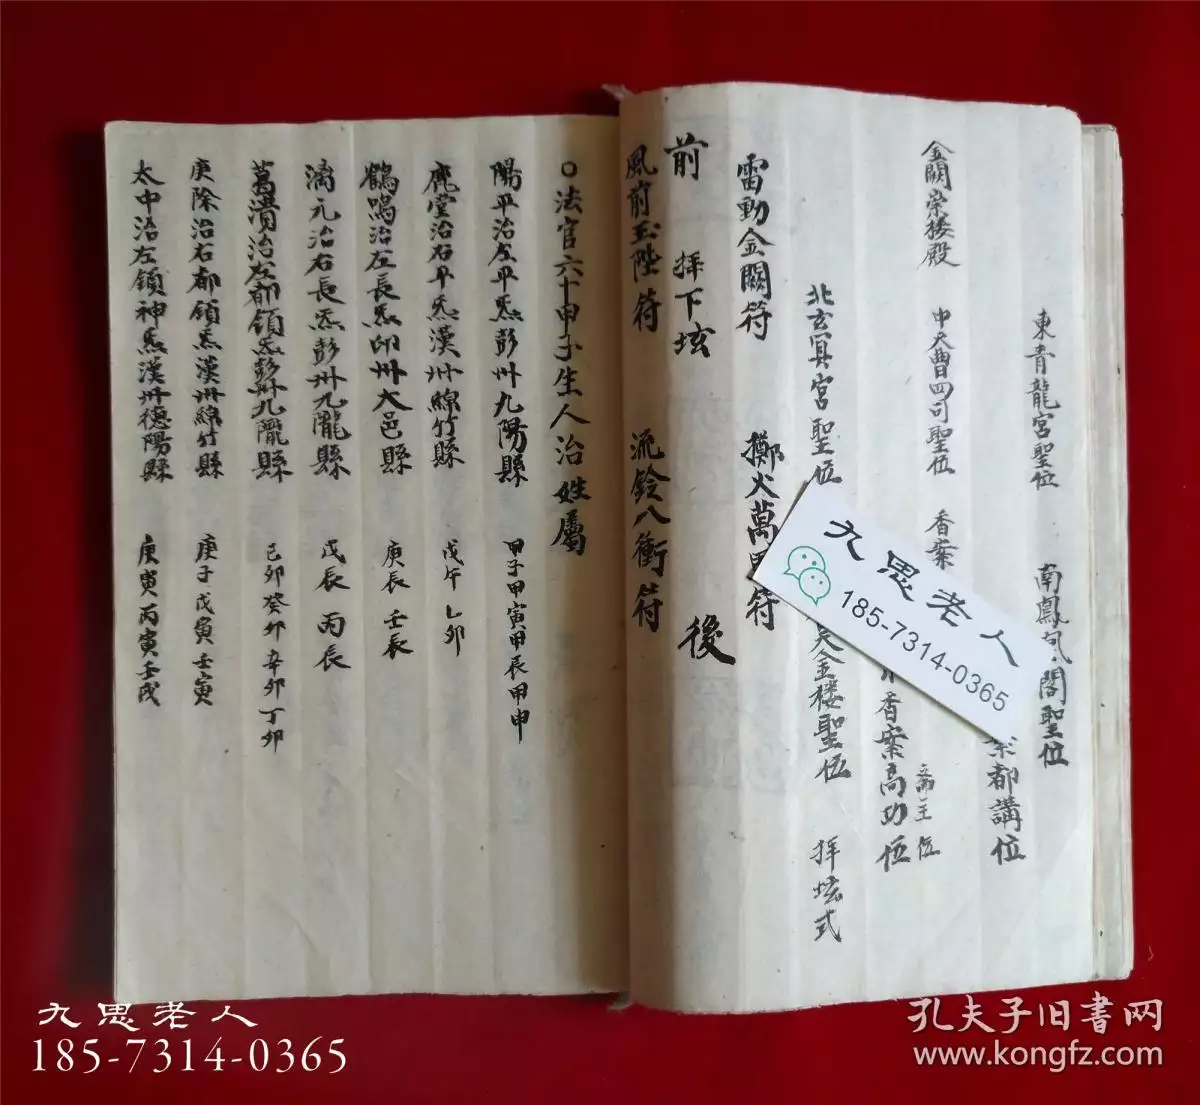 東青龍宮聖位 南鳳凤閣聖位
案都講位
金闕崇楼殿 中天曹四司聖位 香案
香案高功位
斋主位
北玄冥宮聖位 金楼聖位 拝坛式
雷動金闕符 擲火萬甲符
前 拝下坛 後
風前玉陛符 流鈴八衝符
○法官六十甲子生人治姓屬
陽平治左平炁彭州九陽縣 甲子甲寅甲辰甲申
鹿堂治右平炁漢州綿竹縣 戊午乙卯
鶴鳴治左長炁邛州大邑縣 庚辰壬辰
漓元治右長炁彭州九隴縣 戊辰丙辰
葛潰治左都領炁彭州九隴縣 己卯癸卯辛卯丁卯
庚除治右都領炁漢州綿竹縣 庚子戊寅壬寅
太中治左領神炁漢州德陽縣 庚寅丙寅壬戌
九思老人
185-7314-0365
九思老人
185-7314-0365
孔夫子旧书网
www.kongfz.com